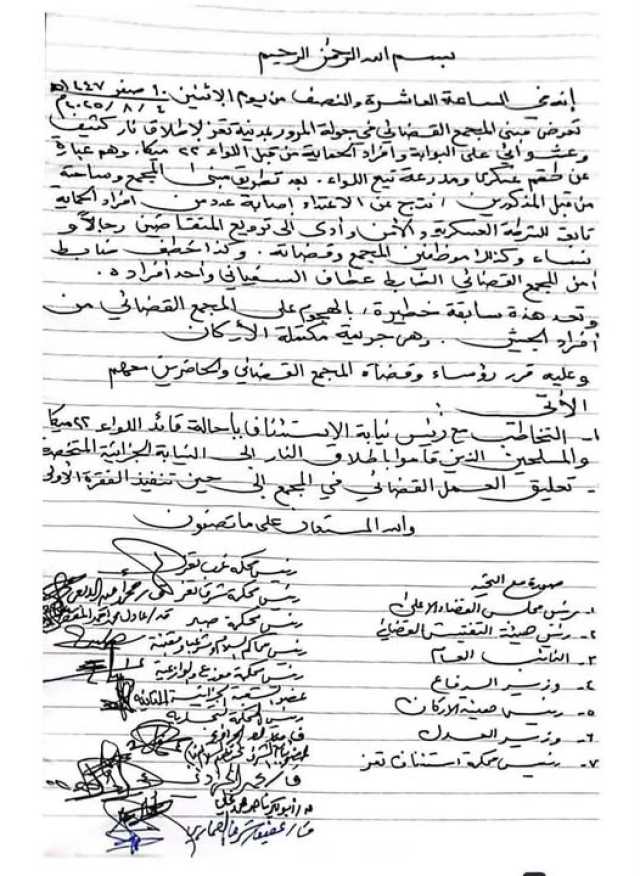 بسم الله الرحمن الرحيم
إنه في الساعة العاشرة والنصف من يوم الاثنين ١٠ صفر ١٤٤٧هـ
٢٠٢٥/٨/٤م
تعرض مبنى المجمع القضائي في جولة المرور بمدينة تعز لإطلاق نار كثيف
وعشوائي على البوابة وافراد الحماية من قبل اللواء ٢٢ ميكا، وهم عبارة
عن طقم عسكري ومدرعة تبع اللواء. بعد تطويق مبنى المجمع وساحته
من قبل المذكورين، نتج عن الاعتداء إصابة عدد من افراد الحماية
تابعة للشرطة العسكرية والأمن وأدى الى ترويع المتقاضين رجالاً و
نساء وكذلك موظفين المجمع وقضاته. وكذا خطف ضابط
أمن المجمع القضائي الضابط عطاف السفياني واحد أفراده.
وتعد هذه سابقة خطيرة، بالهجوم على المجمع القضائي من
أفراد الجيش. وهي جريمة مكتملة الأركان
وعليه قرر رؤساء وقضاة المجمع القضائي والحاضرين معهم
الآتي:
١- التخاطب مع رئيس نيابة الاستئناف بإحالة قائد اللواء ٢٢ ميكا
والمسلحين الذين قاموا باطلاق النار الى النيابة الجزائية المتخصصة
- تعليق العمل القضائي في المجمع الى حين تنفيذ الفقرة الأولى
والله المستعان على ما تصفون
صورة مع التحية
١- رئيس مجلس القضاء الاعلى
٢- رئيس هيئة التفتيش القضائي
٣- النائب العام
٤- وزير الدفاع
٥- رئيس هيئة الاركان
٦- وزير العدل
٧- رئيس محكمة استئناف تعز
رئيس محكمة غرب تعز
رئيس محكمة شرق تعز
رئيس محكمة صبر
رئيس محكمة موزع والوازعية
عضو الشعبة الجزائية الثانية